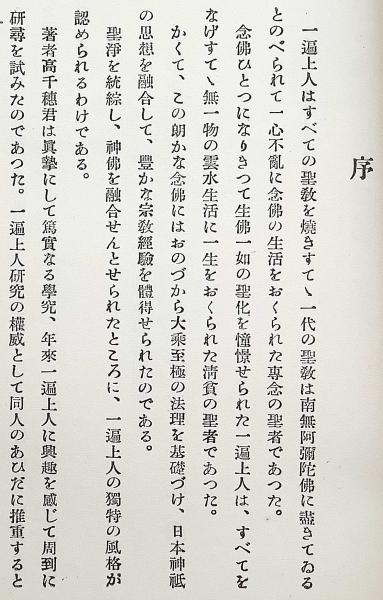 序
一遍上人はすべての聖敎を燒きすてゝ一代の聖敎は南無阿彌陀佛に盡きてゐる
とのべられて一心不亂に念佛の生活をおくられた專念の聖者であつた。
念佛ひとつになりきつて生佛一如の聖化を憧憬せられた一遍上人は、すべてを
なげすてゝ無一物の雲水生活に一生をおくられた淸貧の聖者であつた。
かくて、この朗かな念佛にはおのづから大乘至極の法理を基礎づけ、日本神祇
の思想を融合して、豐かな宗敎經驗を體得せられたのである。
聖淨を統綜し、神佛を融合せんとせられたところに、一遍上人の獨特の風格が
認められるわけである。
著者高千穗君は眞摯にして篤實なる學究、年來一遍上人に興趣を感じて周到に
硏尋を試みたのであつた。一遍上人硏究の權威として同人のあひだに推重すると